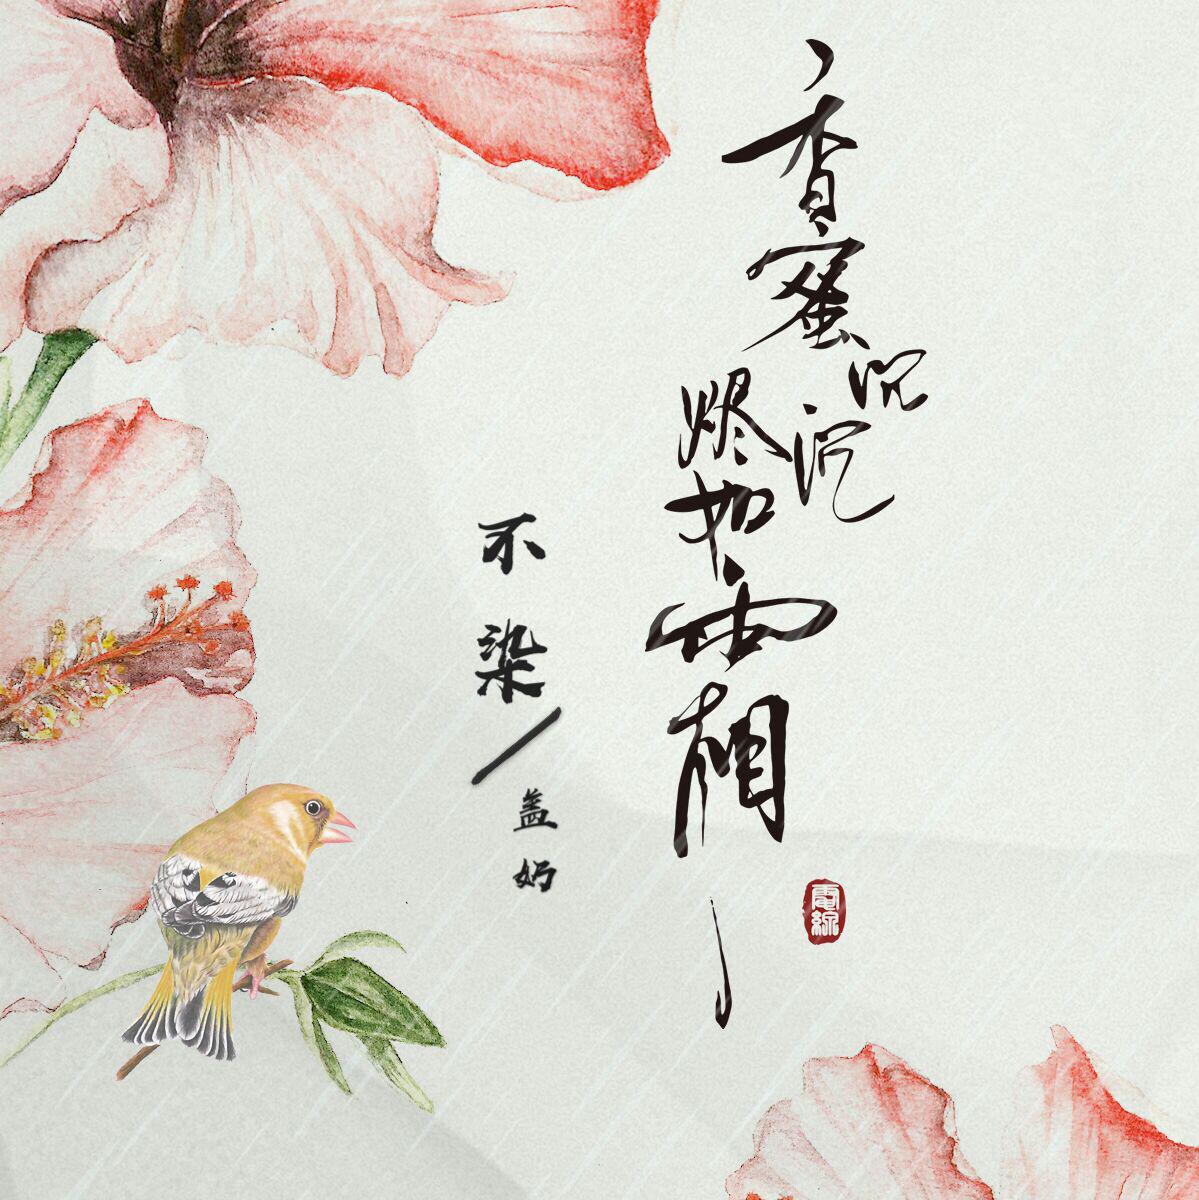 香蜜沉沉
烬如霜
不染
盖奶
電線